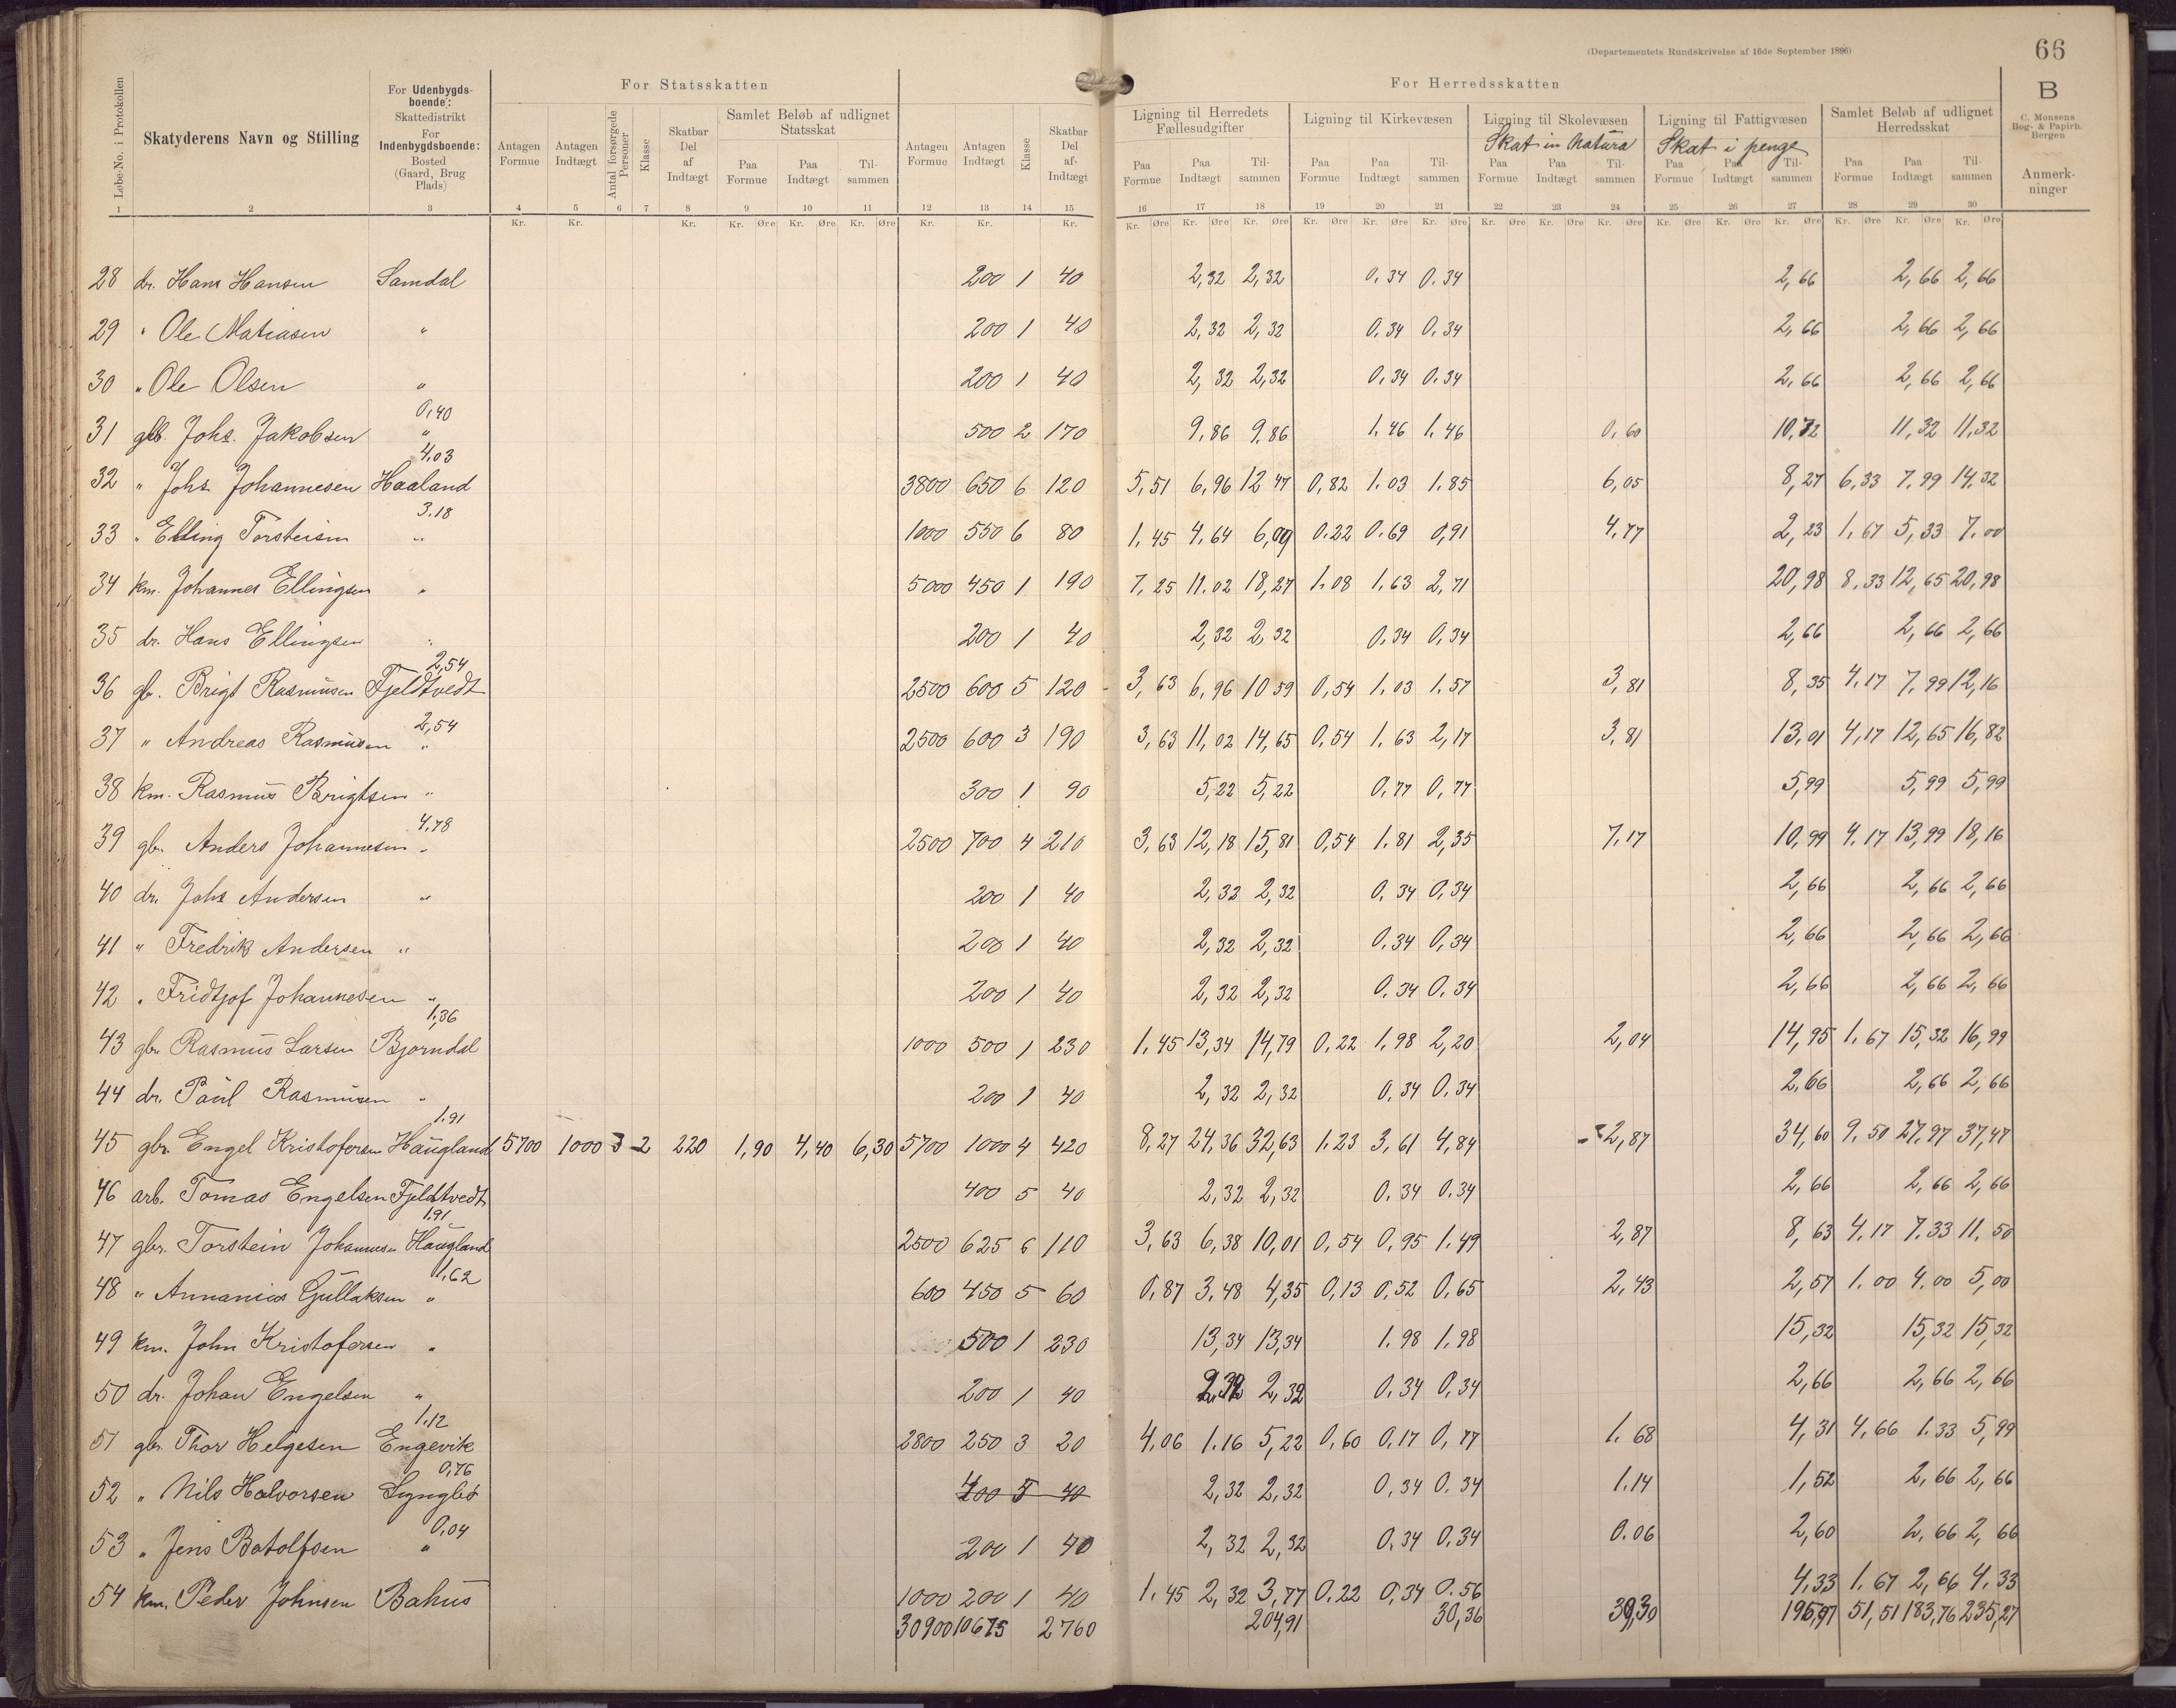 (Departementets Rundskrivelse af 16de September 1896)
66
For Statsskatten
For Herredsskatten
B
C. Monsens
Bog- & Papirh.
Bergen
Løbe-No. i Protokollen
Skatyderens Navn og Stilling
For Udenbygds-
boende:
Skattedistrikt
For
Indenbygdsboende:
Bosted
(Gaard, Brug
Plads)
Antagen Formue
Antagen Indtægt
Antal forsørgede Personer
Klasse
Skatbar Del af Indtægt
Samlet Beløb af udlignet Statsskat
Paa Formue Paa Indtægt Til-sammen
Antagen Formue
Antagen Indtægt
Klasse
Skatbar Del af Indtægt
Ligning til Herredets Fællesudgifter
Paa Formue Paa Indtægt Til-sammen
Ligning til Kirkevæsen
Paa Formue Paa Indtægt Til-sammen
Ligning til Skolevæsen
Skat in Natura
Paa Formue Paa Indtægt Til-sammen
Ligning til Fattigvæsen
Skat i penge
Paa Formue Paa Indtægt Til-sammen
Samlet Beløb af udlignet Herredsskat
Paa Formue Paa Indtægt Til-sammen
Anmerk-
ninger
1 2 3 4 5 6 7 8 9 10 11 12 13 14 15 16 17 18 19 20 21 22 23 24 25 26 27 28 29 30
Kr. Kr. Kr. Kr. Øre Kr. Øre Kr. Øre Kr. Kr. Kr. Kr. Øre Kr. Øre Kr. Øre Kr. Øre Kr. Øre Kr. Øre Kr. Øre Kr. Øre Kr. Øre Kr. Øre Kr. Øre Kr. Øre Kr. Øre Kr. Øre Kr. Øre
28 dr. Hans Hansen Samdal 200 1 40 2,32 2,32 0.34 0.34 2,66 2,66 2,66
29 " Ole Matiasen " 200 1 40 2,32 2,32 0.34 0.34 2,66 2,66 2,66
30 " Ole Olsen " 200 1 40 2,32 2,32 0.34 0.34 2,66 2,66 2,66
0,40
31 gb. Johs. Jakobsen " 500 2 170 9.86 9.86 1.46 1.46 0,60 10.72 11,32 11,32
4.03
32 " Johs Johannesen Haaland 3800 650 6 120 5,51 6,96 12 47 0,82 1.03 1.85 6,05 8,27 6,33 7.99 14.32
3.18
33 " Elling Torsteisen " 1000 550 6 80 1.45 4.64 6,09 0.22 0.69 0,91 4.77 2,23 1.67 5,33 7.00
34 km. Johannes Ellingsen " 5000 450 1 190 7,25 11.02 18,27 1.08 1.63 2,71 20,98 8.33 12,65 20,98
35 dr. Hans Ellingsen " 200 1 40 2,32 2,32 0.34 0,34 2,66 2,66 2,66
2,54
36 gb. Brigt Rasmusen Fjeldtvedt 2500 600 5 120 3,63 6,96 10 59 0,54 1.03 1.57 3,81 8,35 4.17 7,99 12,16
2,54
37 " Andreas Rasmusen " 2500 600 3 190 3,63 11,02 14,65 0,54 1.63 2,17 3,81 13,01 4,17 12,65 16,82
38 km. Rasmus Brigtsen " 300 1 90 5,22 5,22 0,77 0,77 5,99 5,99 5,99
4,78
39 gbr. Anders Johannesen " 2500 700 4 210 3,63 12,18 15,81 0,54 1.81 2,35 7.17 10,99 4.17 13,99 18,16
40 dr. Johs Andersen " 200 1 40 2,32 2,32 0.34 0,34 2,66 2,66 2,66
41 " Fredrik Andersen " 200 1 40 2,32 2,32 0.34 0,34 2,66 2,66 2,66
42 " Fridtjof Johannesen " 200 1 40 2,32 2,32 0.34 0.34 2,66 2,66 2,66
1,36
43 gbr. Rasmus Larsen Bjørndal 1000 500 1 230 1.45 13,34 14,79 0,22 1,98 2,20 2,04 14,95 1.67 15,32 16,99
44 dr. Paul Rasmusen " 200 1 40 2,32 2,32 0,34 0.34 2,66 2,66 2,66
1.91
45 gbr. Engel Kristofersen Haugland 5700 1000 3 2 220 1,90 4,40 6,30 5700 1000 4 420 8,27 24,36 32,63 1.23 3,61 4,84 2,87 34,60 9,50 27,97 37,47
46 arb. Tomas Engelsen Fjeldtvedt 400 5 40 2,32 2,32 0.34 0.34 2,66 2,66 2,66
1.91
47 gbr. Torstein Johannesen Haugland 2500 625 6 110 3,63 6,38 10,01 0,54 0,95 1.49 2,87 8,63 4,17 7.33 11.50
1.62
48 " Annanias Gullaksen " 600 450 5 60 0,87 3.48 4,35 0,13 0,52 0,65 2,43 2,57 1.00 4.00 5,00
49 km. John Kristofersen " 500 1 230 13,34 13,34 1.98 1,98 15,32 15,32 15,32
50 dr. Johan Engelsen " 200 1 40 2,32 2,32 0.34 0,34 2,66 2,66 2,66
1.12
51 gbr. Thor Helgesen Engevik 2800 250 3 20 4,06 1.16 5,22 0,60 0,17 0,77 1.68 4,31 4,66 1.33 5,99
0,76
52 " Nils Halvorsen 400 5 40 2,32 2,32 0,34 0.34 1.14 1,52 2,66 2,66
0,04
53 " Jens Botolfsen " 200 1 40 2,32 2,32 0.34 0.34 0.06 2,60 2,66 2,66
54 km. Peder Johnsen Bahus 1000 200 1 40 1.45 2,32 3,77 0.22 0,34 0.56 4,33 1.67 2,66 4.33
30900 10675 2760 204,91 30,36 39,30 195,97 51,51 183,76 235,27